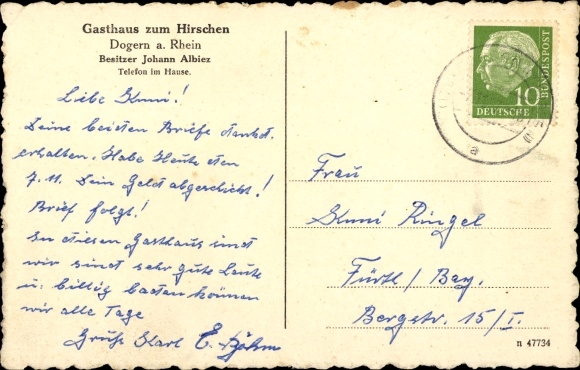 Gasthaus zum Hirschen
Dogern a. Rhein
Besitzer Johann Albiez
Telefon im Hause.
Liebe Kuni!
Deine beiden Briefe dankd.
erhalten. Habe Heute den
7.11. Dein Geld abgeschickt!
Brief folgt!
In diesen Gasthaus sind
wir sind sehr gute Leute
u. billig baden können
wir alle Tage
Grüße Karl E. Böhm
DEUTSCHE
BUNDESPOST
10
a
Frau
Kuni Ringel
Fürth/Bay.
Bergstr. 15/I.
n 47734